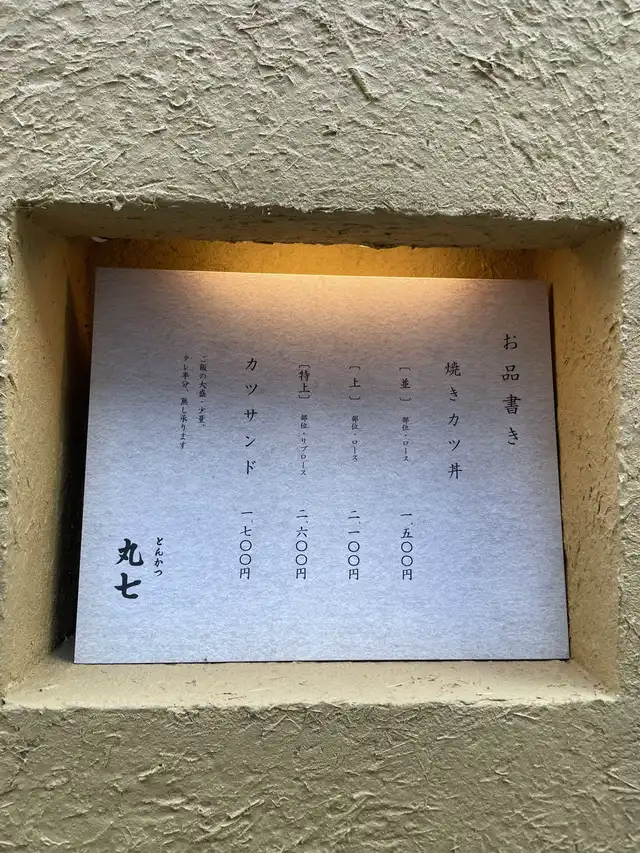 お品書き
焼きカツ丼
［並］ 部位・ロース 一、五〇〇円
［上］ 部位・ロース 二、一〇〇円
［特上］ 部位・リブロース 二、六〇〇円
カツサンド 一、七〇〇円
ご飯の大盛・少量、
タレ半分、無し承ります
とんかつ
丸七